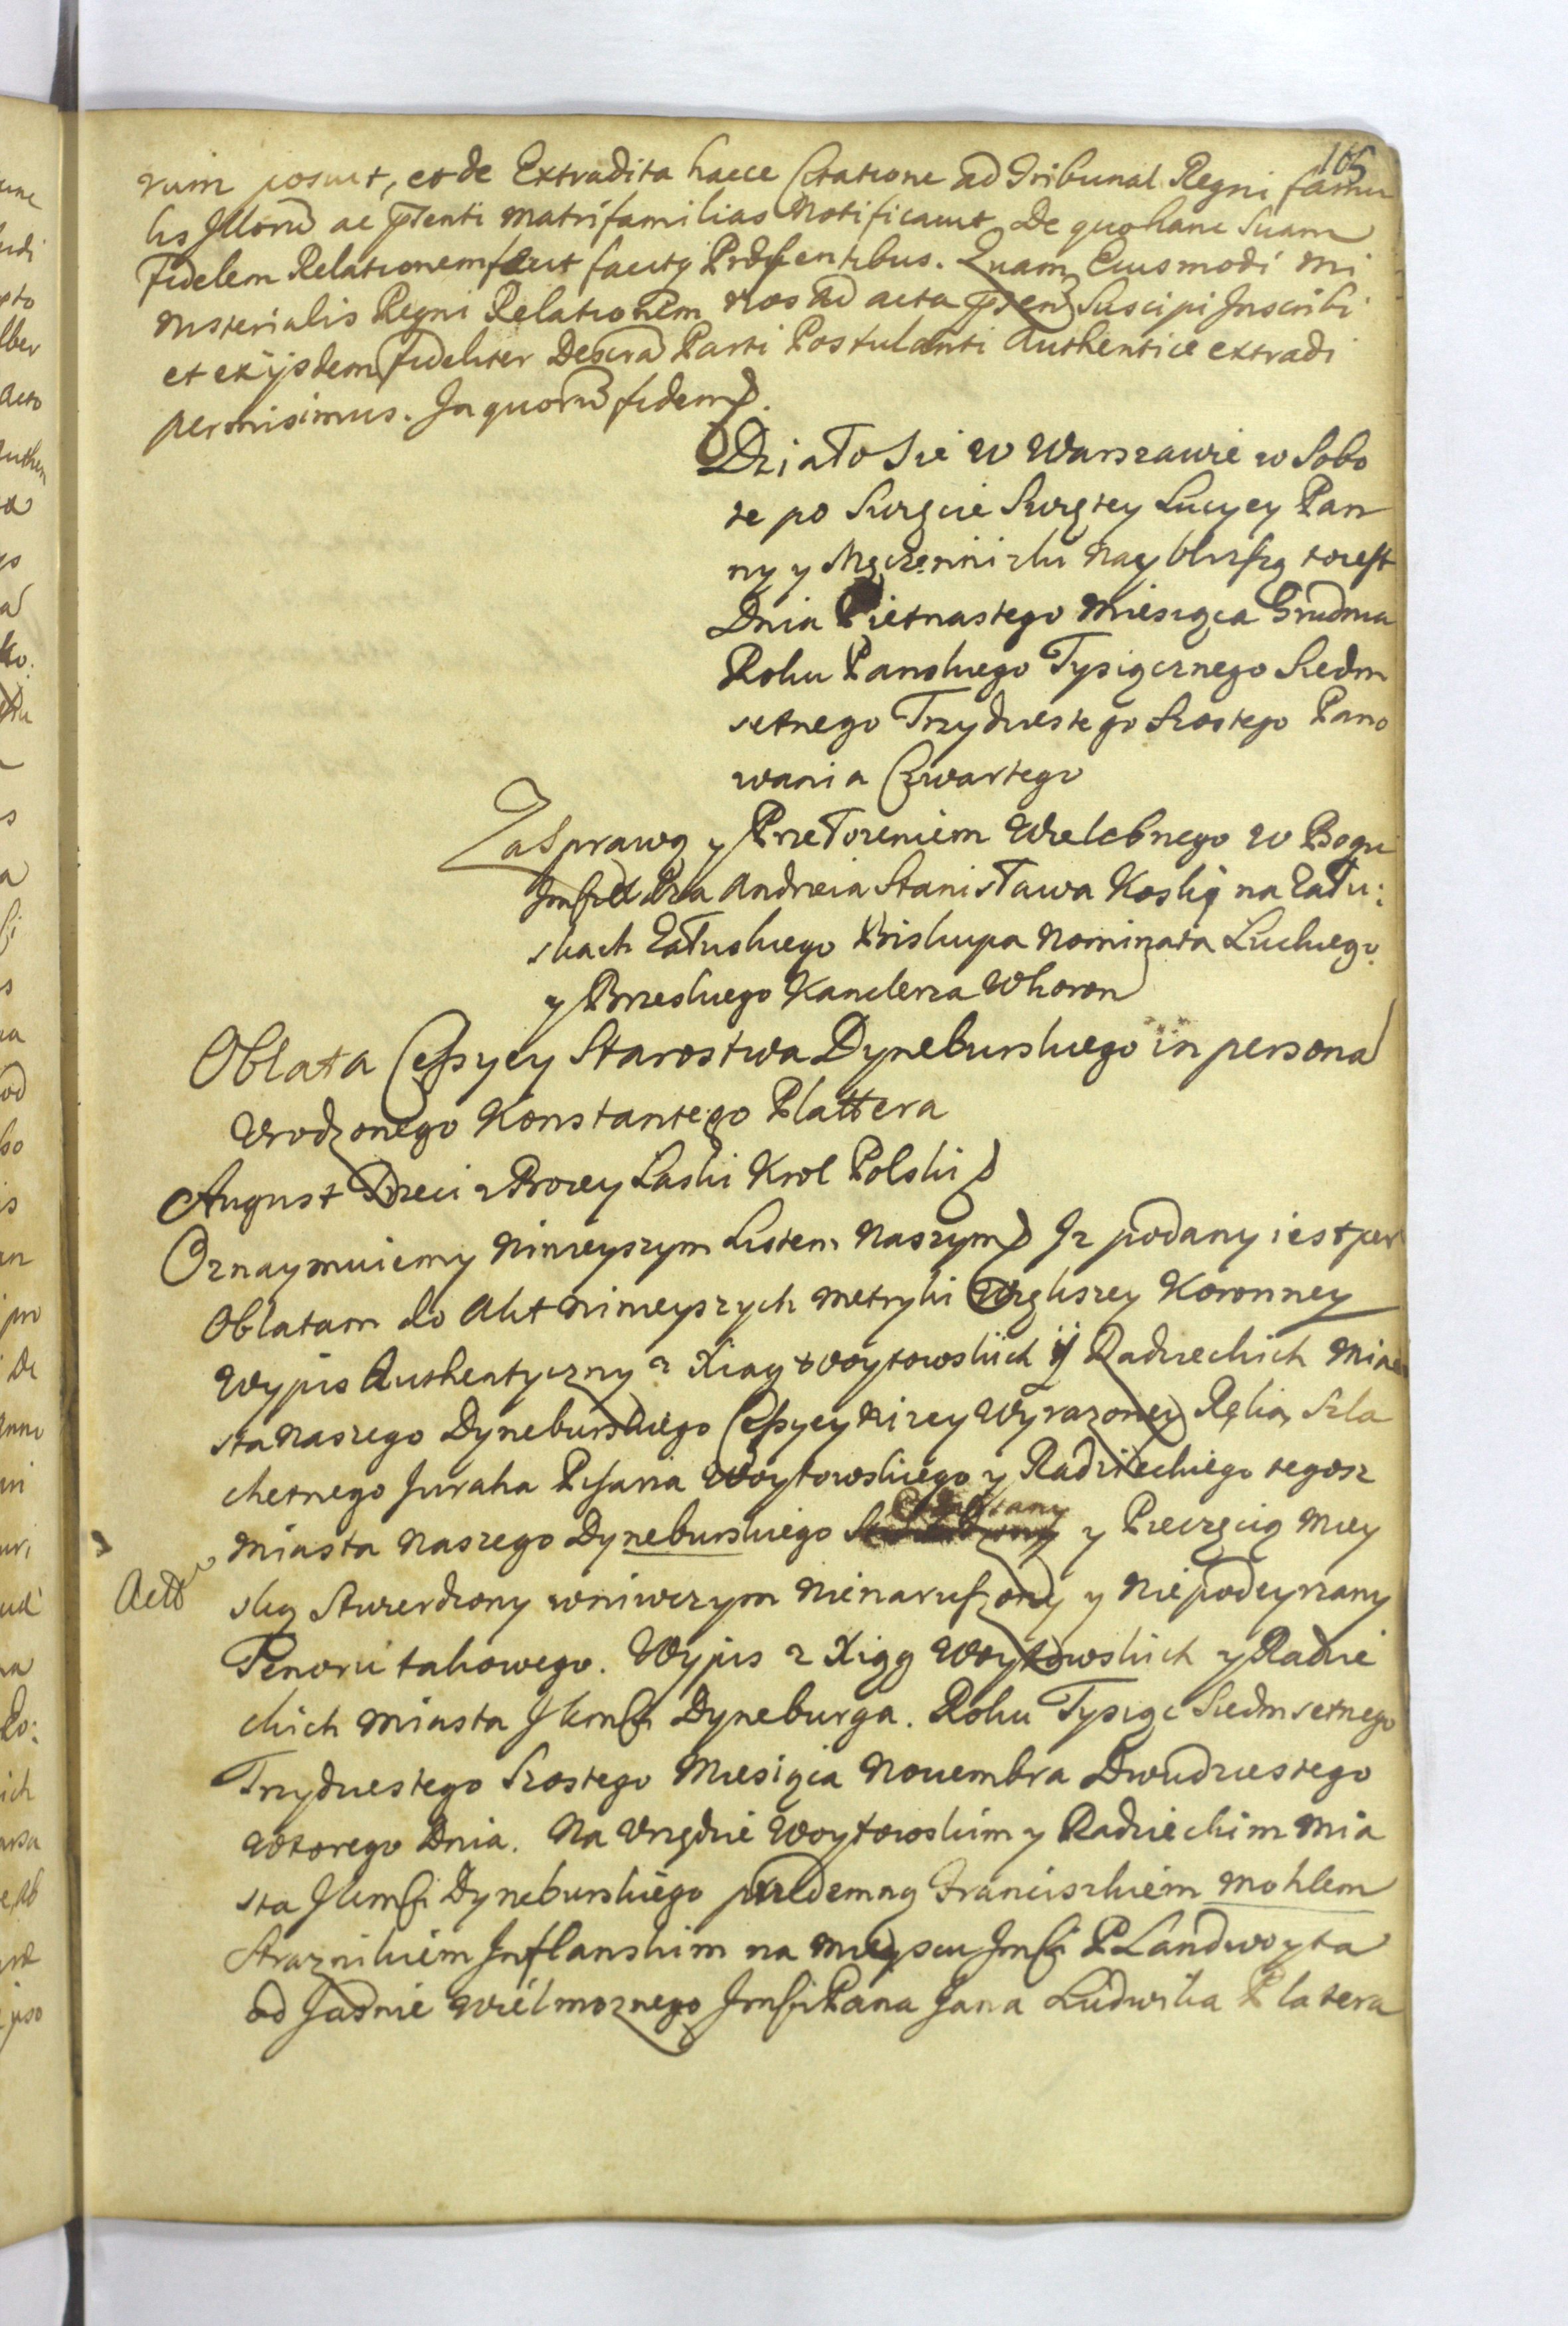 105
rum posuit, et de Extradita haece Citatione ad Tribunal Regni famu
lis Illorũ ac pſenti matrifamilias Notificavit De quo hanc Suam
fidelem Relationem fecit facitq Prdſentibus. Quam Eiusmodi Mi
nisterialis Regni Relationem nos ad acta pſen Suscipi Inscribi
et ex ijsdem fideliter Parti Postulanti Authentice extradi
permisimus. In quorũ fidem
Działo Sie w Warszawie w Sobo
te po Swięcie Swiętey Lucyey Pan
ny y Męczenniczki Nayblizſzą to iest
Dnia Pietnastego Miesiąca Grudnia
Roku Panskiego Tysiącznego Siedm
setnego Trzydziestego Szostego Pano
wania Czwartego
Za Sprawą y Przełozeniem Wielebnego w Bogu
Andrzeia Stanisława Kostki na Zału:
skach Załuskiego Biskupa Nominata Luckiego
y Brzeskiego Kanclerza Wkoron
Oblata Ceſsyey Starostwa Dyneburskiego in persona
Urodzonego Konstantego Plattera
August Trzeci z Bozey Laski Krol Polski
Oznaymuiemy Ninieyszym Listem Naszym Iz podany iest per
Oblatam do Akt Ninieyszych Metryki Większey Koronney
Wypis Authentyczny z Xiąg Woytowskich y Radzieckich Mia
sta Naszego Dyneburskiego Ceſsyey Nizey Wyrazoney Ręką Szla
chetnego Juraha Piſarza Woytowskiego y Radzieckiego tegosz
Miasta Naszego Dyneburskiego y Pieczęcią Miey
ską Stwierdzony wniwczym Nienaruſzony y Niepodeyrzany
Actũ
Tenoru takowego. Wypis z Xiąg Woytowskich y Radzie
ckich Miasta JKmſci Dyneburga. Roku Tysiąc Siedmsetnego
Trzydziestego Szostego Miesiąca Novembra Dwudziestego
Wtorego Dnia. Na Urzędzie Woytowskim y Radzieckim Mia
sta JKmſci Dyneburskiego przedemną Franciszkiem Mohlem
Straznikiem Inflanskim na Mieyscu Jmſci P Landwoyta
od Jasnie Wielmoznego Jmſci Pana Jana Ludwika Platera